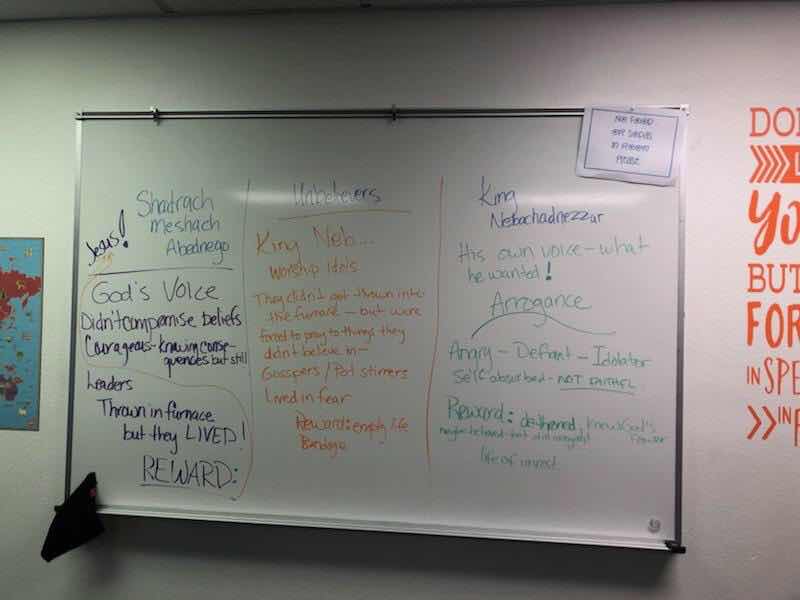 Jesus!
Shadrach
Meshach
Abednego
God's Voice
Didn't compromise beliefs
Courageous - knowing conse-
quences but still
Leaders
Thrown in furnace
but they LIVED!
REWARD:
Unbelievers
King Neb...
Worship Idols
They didn't get thrown into
the furnace - but were
forced to pray to things they
didn't believe in -
Gosspers / Pot stirrers
Lived in fear
Reward: empty life
Bondage
King
Nebachadnezzar
His own voice - what
he wanted!
Arrogance
Angry - Defiant - Idolator
Self absorbed - NOT FAITHFL
Reward: dethroned, knows God's
Power
maybe believed - but still arrogant
life of unrest
Please
DO
YO
BUT
FOR
IN SPE
IN